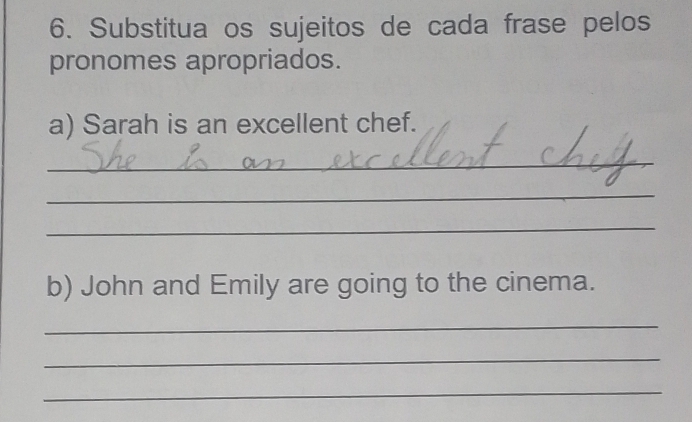 6. Substitua os sujeitos de cada frase pelos
pronomes apropriados.
a) Sarah is an excellent chef.
She is an excellent chef.
b) John and Emily are going to the cinema.